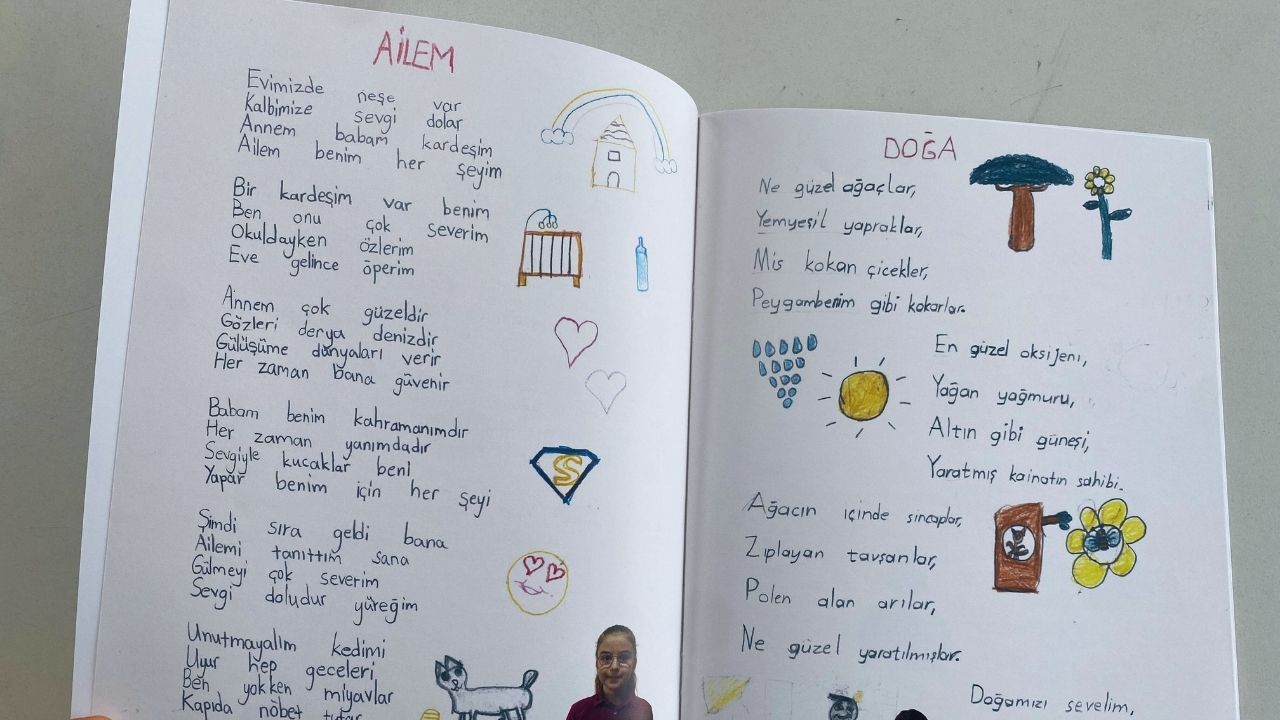 AİLEM
Evimizde neşe var
Kalbimize sevgi dolar
Annem babam kardeşim
Ailem benim her şeyim
Bir kardeşim var benim
Ben onu çok severim
Okuldayken özlerim
Eve gelince öperim
Annem çok güzeldir
Gözleri derya denizdir
Gülüşüme dünyaları verir
Her zaman bana güvenir
Babam benim kahramanımdır
Her zaman yanımdadır
Sevgiyle kucaklar beni
Yapar benim için her şeyi
Şimdi sıra geldi bana
Ailemi tanıttım sana
Gülmeyi çok severim
Sevgi doludur yüreğim
Unutmayalım kedimi
Uyur hep geceleri
Ben yokken miyavlar
Kapıda nöbet tutar
S
DOĞA
Ne güzel ağaçlar,
Yemyeşil yapraklar,
Mis kokan çicekler,
Peygamberim gibi kokarlar.
En güzel oksijeni,
Yağan yağmuru,
Altın gibi güneşi,
Yaratmış kainatın sahibi.
Ağacın içinde sincaplar,
Zıplayan tavşanlar,
Polen alan arılar,
Ne güzel yaratılmışlar.
Doğamızı sevelim,